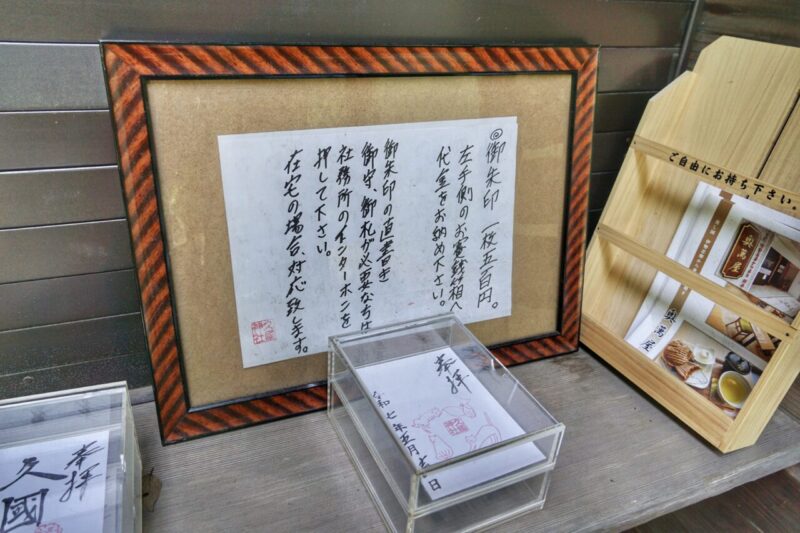 ◎御朱印 一枚五百円。
左手側のお賽銭箱へ
代金をお納め下さい。
御朱印の直書きや
御守、御札が必要な方は
社務所のインターホンを
押して下さい。
在宅の場合、対応致します。
奉拝
令和七年五月
日
奉拝
久國
ご自由にお持ち下さい。
奥萬屋
奥萬屋